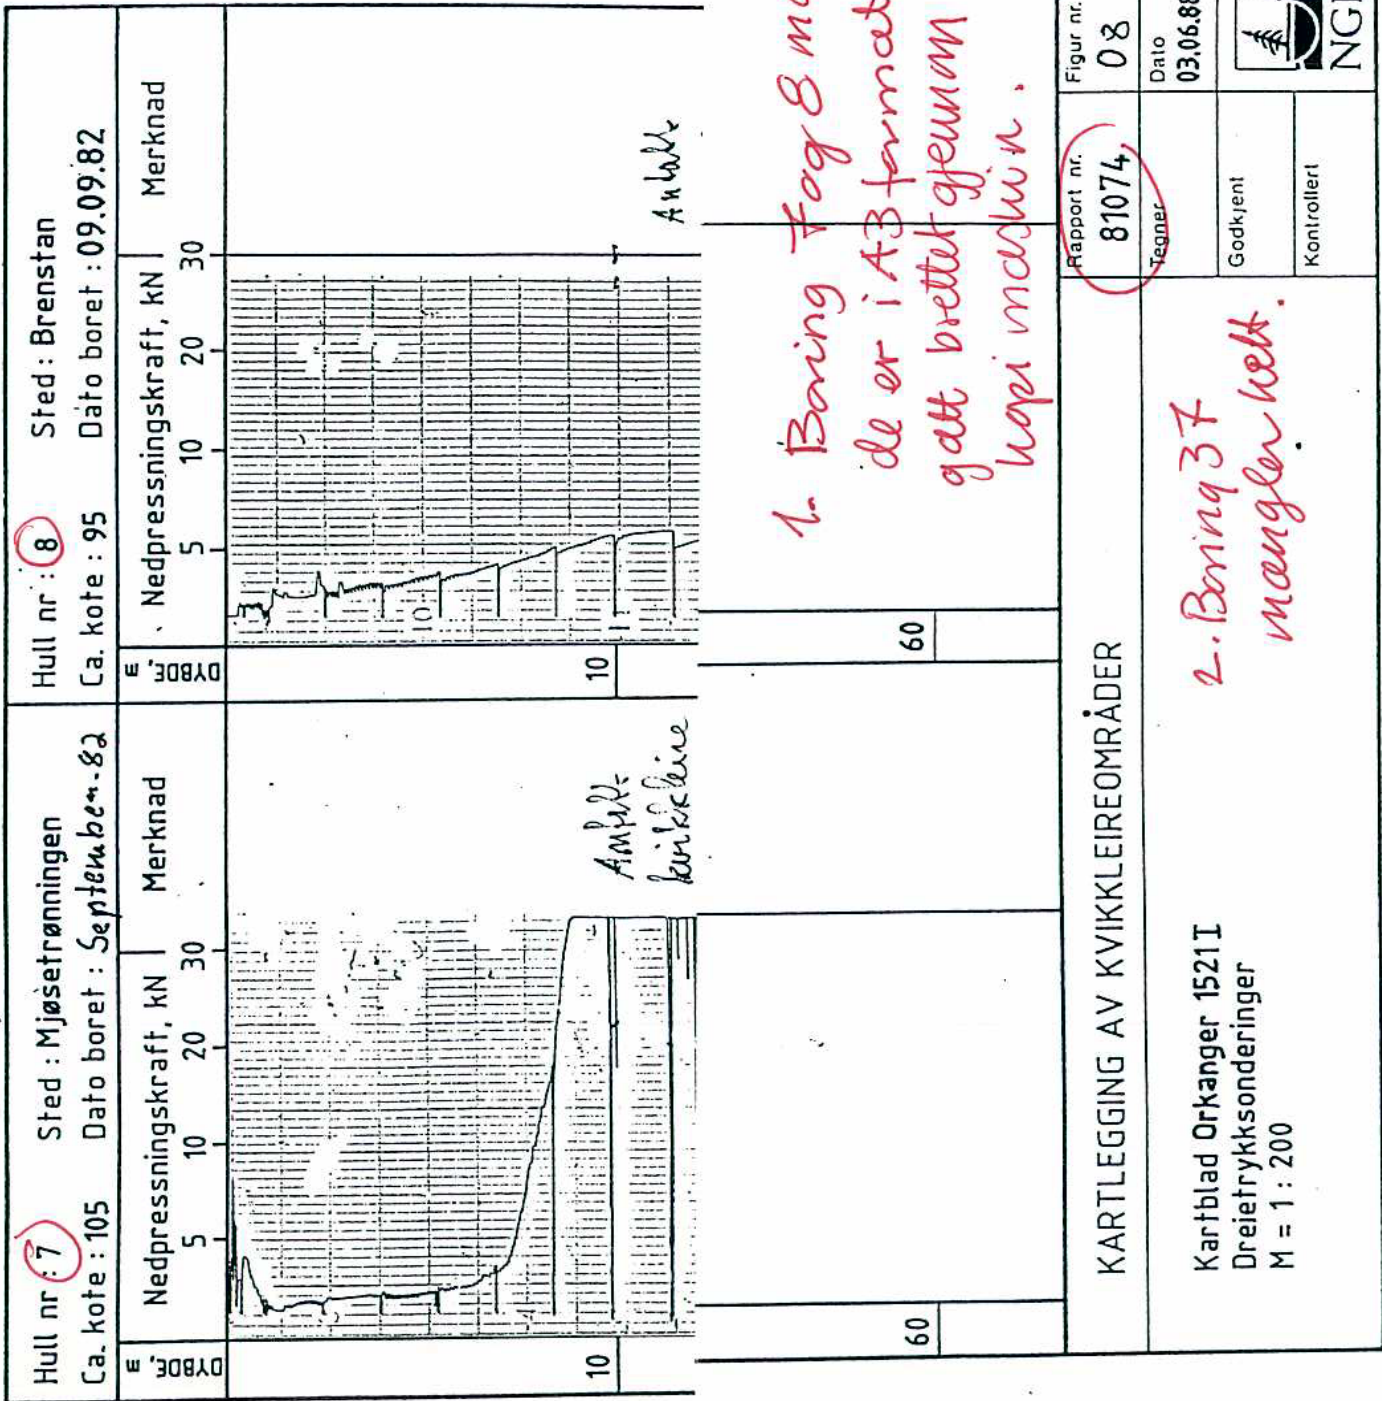 Hull nr : 7 Sted : Mjøsetrønningen
Ca. kote : 105 Dato boret : September-82
DYBDE, m
Nedpressningskraft, kN
Merknad
5 10 20 30
10
Antatt
kvikkleire
60
Hull nr : 8 Sted : Brenstan
Ca. kote : 95 Dato boret : 09.09.82
DYBDE, m
Nedpressningskraft, kN
Merknad
5 10 20 30
10
10
Antatt
60
1. Boring 7 og 8 ma
de er i A3 format
gått brettet gjennom
kopi maskin.
KARTLEGGING AV KVIKKLEIREOMRÅDER
Kartblad Orkanger 1521 I
Dreietrykksonderinger
M = 1 : 200
2. Boring 37
mangler helt.
Rapport nr.
81074
Figur nr.
08
Tegner
Dato
03.06.88
Godkjent
Kontrollert
NGI